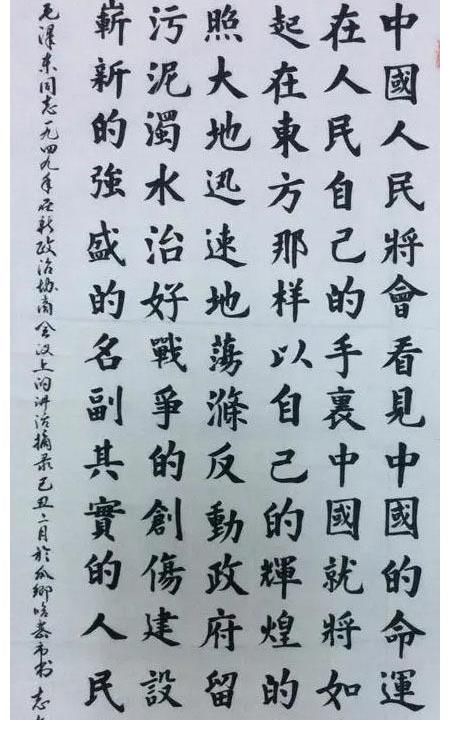 中國人民將會看見中國的命運
在人民自己的手裏中國就將如
起在東方那样以自己的輝煌的
照大地迅速地蕩滌反動政府留
污泥濁水治好戰爭的創傷建設
嶄新的強盛的名副其實的人民
毛澤东同志一九四九年在新政治协商会议上的讲话摘录己丑二月於